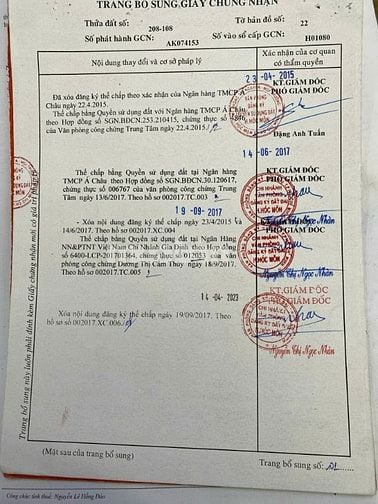 TRANG BỔ SUNG GIẤY CHỨNG NHẬN
Thửa đất số: 208-108 Tờ bản đồ số: 22
Số phát hành GCN: AK074153 Số vào sổ cấp GCN: H01080
Nội dung thay đổi và cơ sở pháp lý
Xác nhận của cơ quan
có thẩm quyền
23 -04- 2015
Đã xóa đăng ký thế chấp theo xác nhận của Ngân hàng TMCP Á
Châu ngày 22.4.2015.
Thế chấp Bằng Quyền sử dụng đất với Ngân hàng TMCP Á
Châu theo Hợp đồng số SGN.BĐCN.253.210415, chứng thực số
của Văn phòng công chứng Trung Tâm ngày 22.4.2015
KT.GIÁM ĐỐC
PHÓ GIÁM ĐỐC
Đặng Anh Tuấn
14 -06- 2017
Thế chấp bằng Quyền sử dụng đất tại Ngân hàng
TMCP Á Châu theo Hợp đồng số SGN.BĐCN.30.120617,
chứng thực số 006767 của văn phòng công chứng Trung
Tâm ngày 13/6/2017. Theo hồ sơ 002017.TC.003
KT.GIÁM ĐỐC
PHÓ GIÁM ĐỐC
CHI NHÁNH
VĂN PHÒNG
ĐĂNG KÝ ĐẤT ĐAI
H.HÓC MÔN
Nguyễn Thị Ngọc Nhân
19 -09- 2017
- Xóa nội dung đăng ký thế chấp ngày 23/4/2015 và
14/6/2017. Theo hồ sơ 002017.XC.004
Thế chấp bằng Quyền sử dụng đất tại Ngân Hàng
NN&PTNT Việt Nam Chi Nhánh Gia Định theo Hợp đồng
số 6400-LCP-201701364, chứng thực số 012053 của văn
phòng công chứng Dương Thị Cẩm Thủy ngày 18/9/2017.
Theo hồ sơ 002017.TC.005
Nguyễn Thị Ngọc Nhân
14 -04- 2023
KT.GIÁM ĐỐC
PHÓ GIÁM ĐỐC
Xóa nội dung đăng ký thế chấp ngày 19/09/2017. Theo
hồ sơ số 002017.XC.006
CHI NHÁNH
VĂN PHÒNG
ĐĂNG KÝ ĐẤT ĐAI
H.HÓC MÔN
Nguyễn Thị Ngọc Nhân
Trang bổ sung này luôn phải đính kèm Giấy chứng nhận mới có giá trị pháp lý
(Mặt sau của trang bổ sung)
Trang bổ sung số: 01
Công chức tính thuế: Nguyễn Lê Hồng Đào